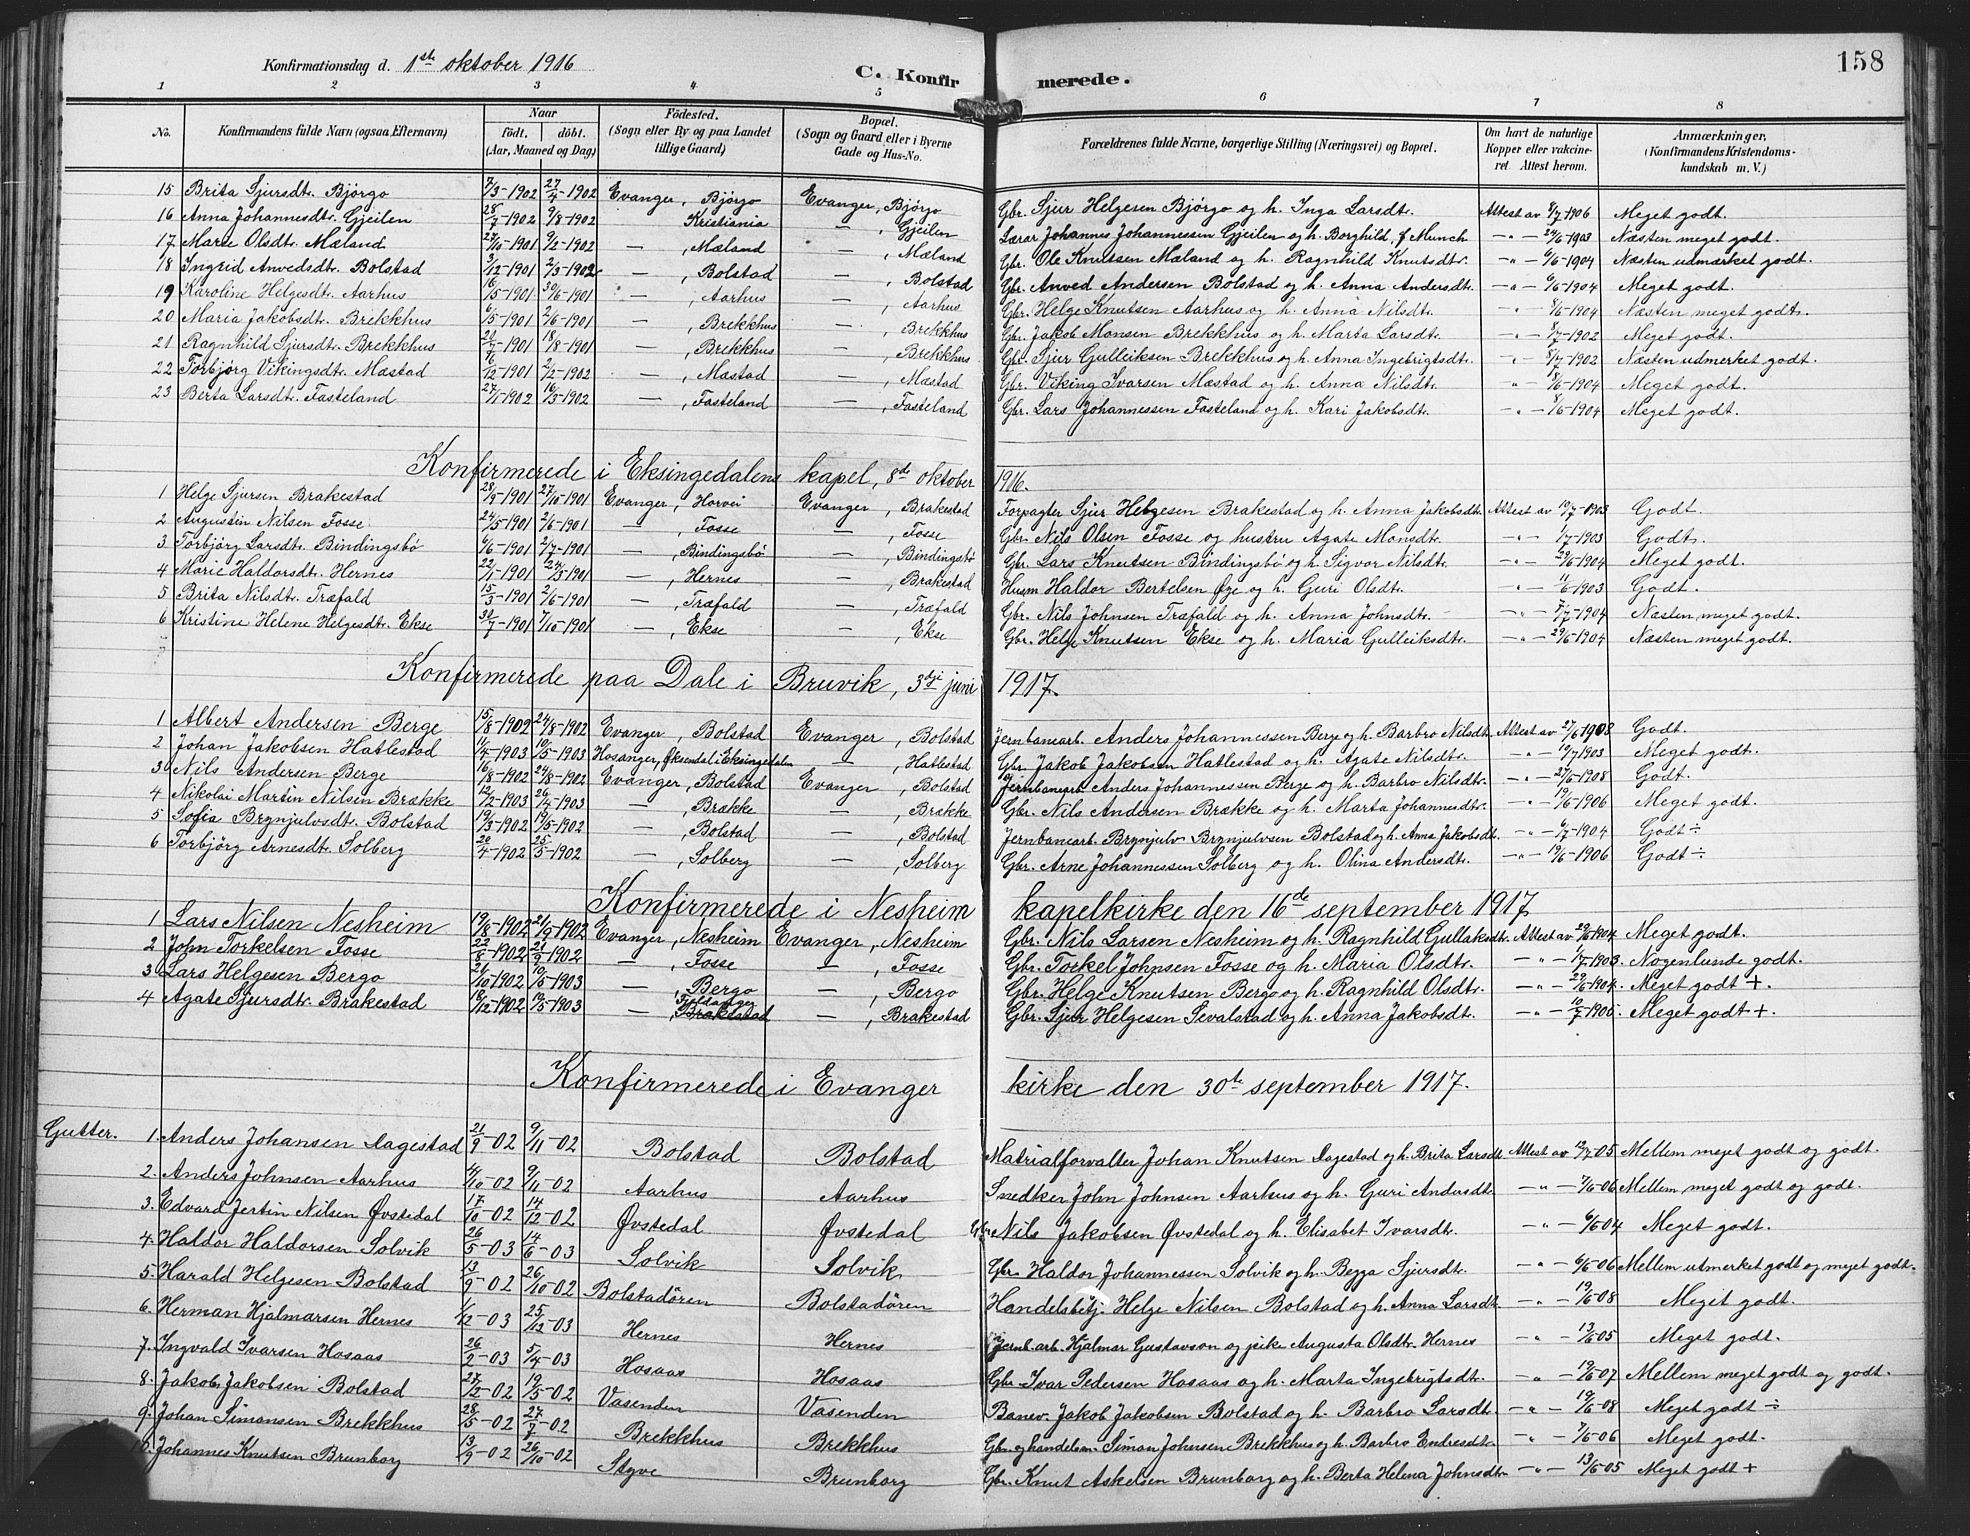 158
Konfirmationsdag d. 1ste oktober 1916
C. Konfirmerede.
1 2 3 4 5 6 7 8
No. Konfirmandens fulde Navn (ogsaa Efternavn) Naar født. døbt. (Aar, Maaned og Dag) Fødested. (Sogn eller By og paa Landet tillige Gaard) Bopæl. (Sogn og Gaard eller i Byerne Gade og Hus-No. Forældrenes fulde Navne, borgerlige Stilling (Næringsvei) og Bopæl. Om havt de naturlige Kopper eller vakcineret. Attest herom. Anmærkninger. (Konfirmandens Kristendomskundskab m. V.)
15 Brita Sjursdtr. Bjørgo 7/3-1902 27/4-1902 Evanger, Bjørgo Evanger, Bjørgo Gbr. Sjur Helgesen Bjørgo og h. Inga Larsdtr. Attest av 8/7 1906 Meget godt.
16 Anna Johannesdtr. Gjeilen 28/7-1902 9/8-1902 Kristiania — , Gjeilen Lærar Johannes Johannessen Gjeilen og h. Borghild, f Munch —"— 24/6-1903 Næsten meget godt.
17 Marie Olsdtr. Mæland 27/10-1901 9/2-1902 — , Mæland — , Mæland Gbr. Ole Knutsen Mæland og h. Ragnhild Knutsdtr. —"— 9/6-1904 Næsten udmærket godt.
18 Ingrid Anvedsdtr. Bolstad 3/12-1901 2/3-1902 — , Bolstad — , Bolstad Gbr. Anved Andersen Bolstad og h. Anna Andersdtr. —"— 6/6-1904 Meget godt.
19 Karoline Helgesdtr. Aarhus 16/5-1901 30/6-1901 — , Aarhus — , Aarhus Gbr. Helge Knutsen Aarhus og h. Anna Nilsdtr. " — 8/6-1904 Næsten meget godt.
20 Maria Jakobsdtr. Brekkhus 6/5-1901 2/6-1901 — , Brekkhus — , Brekkhus Gbr. Jakob Monsen Brekkhus og h. Marta Larsdtr. —"— 8/7-1902 Meget godt.
21 Ragnhild Sjursdtr. Brekkhus 21/7-1901 18/8-1901 — , Brekkhus — , Brekkhus Gbr. Sjur Gulleiksen Brekkhus og h. Anna Ingebrigtsdtr. —"— 8/7-1902 Næsten udmerket godt.
22 Torbjørg Vikingsdtr. Mæstad 16/12-1901 2/2-1902 — , Mæstad — , Mæstad Gbr. Viking Ivarsen Mæstad og h. Anna Nilsdtr. " — 8/6-1904 Meget godt.
23 Berta Larsdtr. Fasteland 27/1-1902 16/3-1902 — , Fasteland — , Fasteland Gbr. Lars Johannessen Fasteland og h. Kari Jakobsdtr. —"— 8/6-1904 Meget godt.
Konfirmerede i Eksingedalens kapel, 8de oktober 1916.
1 Helge Sjursen Brakestad 28/9-1901 27/10-1901 Evanger, Horvei Evanger, Brakestad Forpagter Sjur Helgesen Brakestad og h. Anna Jakobsdtr. Attest av 10/7-1903 Godt.
2 Augustin Nilsen Fosse 24/5-1901 2/6-1901 — , Fosse — , Fosse Gbr. Nils Olsen Fosse og hustru Agate Monsdtr. —"— 1/7-1903 Godt.
3 Torbjørg Larsdtr. Bindingsbø 6/6-1901 2/7-1901 — , Bindingsbø — , Bindingsbø Gbr. Lars Knutsen Bindingsbø og h. Sigvor Nilsdtr. —"— 29/6-1904 Meget godt.
4 Marie Haldorsdtr. Hernes 22/1-1901 24/3-1901 — , Hernes — , Brakestad Husm Haldor Bertelsen Øye og h. Guri Olsdtr. " — 11/6-1903 Godt.
5 Brita Nilsdtr. Træfald 15/3-1901 2/6-1901 — , Træfald — , Træfald Gbr. Nils Johnsen Træfald og h. Anna Johnsdtr. —"— 7/7-1904 Næsten meget godt.
6 Kristine Helene Helgesdtr. Ekse 30/7-1901 7/10-1901 — , Ekse — , Ekse Gbr. Helge Knutsen Ekse og h. Maria Gulleiksdtr. —"— 29/6-1904 Næsten meget godt.
Konfirmerede paa Dale i Bruvik, 3dje juni 1917.
1 Albert Andersen Berge 15/8-1902 24/8-1902 Evanger, Bolstad Evanger, Bolstad Jernbanearb. Anders Johannessen Berge og h. Barbro Nilsdtr. Attest av 27/6 1908 Godt.
2 Johan Jakobsen Hatlestad 1/4-1903 10/5-1903 Hosanger, Øksendal i Eksingedalen — , Hatlestad Gbr. Jakob Jakobsen Hatlestad og h. Agate Nilsdtr. —"— 10/7 1903 Meget godt.
3 Nils Andersen Berge 16/8-1902 24/8-1902 Evanger, Bolstad Evanger, Bolstad Jernbanearb. Anders Johannessen Berge og h. Barbro Nilsdtr. —"— 27/6 1908 Godt.
4 Nikolai Martin Nilsen Brække 12/2-1903 26/4-1903 — , Brække — , Brække Gbr. Nils Andersen Brække og h. Marta Johannesdtr. —"— 19/6-1906 Meget godt.
5 Sofia Brynjulvsdtr. Bolstad 19/3-1902 19/5-1902 — , Bolstad — , Bolstad Jernbanearb. Brynjulv Brynjulvsen Bolstad og h. Anna Jakobsdtr. —"— 6/7-1904 Godt ÷
6 Torbjørg Arnesdtr. Solberg 20/4-1902 25/5-1902 — , Solberg — , Solberg Gbr. Arne Johannessen Solberg og h. Olina Andersdtr. —"— 19/6-1906 Godt ÷
Konfirmerede i Nesheim kapelkirke den 16de september 1917
1 Lars Nilsen Nesheim 19/8-1902 21/9-1902 Evanger, Nesheim Evanger, Nesheim Gbr. Nils Larsen Nesheim og h. Ragnhild Gullaksdtr. Attest av 29/6 1904 Meget godt.
2 John Torkelsen Fosse 22/8-1902 21/9-1902 — , Fosse — , Fosse Gbr. Torkel Johnsen Fosse og h. Maria Olsdtr. —"— 1/7-1903. Nogenlunde godt.
3 Lars Helgesen Bergo 21/10-1902 10/5-1903 — , Bergo — , Bergo Gbr. Helge Knutsen Bergo og h. Ragnhild Olsdtr. —"— 29/6-1904. Meget godt +.
4 Agate Sjursdtr. Brakestad 19/12-1902 10/5-1903 — , Brakestad — , Brakestad Gbr. Sjur Helgesen Sevalstad og h. Anna Jakobsdtr. —"— 10/7-1905. Meget godt +.
Konfirmerede i Evanger kirke den 30te september 1917.
Gutter. 1. Anders Johansen Dagestad 21/9-02 9/11-02 Bolstad Bolstad Matrialforvalter Johan Knutsen Dagestad og h. Brita Larsdtr. Attest av 12/7-05 Mellem meget godt og godt.
2. Anders Johnsen Aarhus 4/10-02 9/11-02 Aarhus Aarhus Snedker John Johnsen Aarhus og h. Guri Andersdtr. —"— 7/6-06 Mellem meget godt og godt.
3. Edvard Jertin Nilsen Øvstedal 17/10-02 14/12-02 Øvstedal Øvstedal Gbr. Nils Jakobsen Øvstedal og h. Elisabet Ivarsdtr. —"— 6/6-04 Meget godt.
4. Haldor Haldorsen Solvik 26/5-03 14/6-03 Solvik Solvik Gbr. Haldor Johannessen Solvik og h. Begga Sjursdtr. —"— 9/6-06 Mellem utmerket godt og meget godt.
5. Harald Helgesen Bolstad 13/9-02 26/10-02 Bolstadøren Bolstadøren Handelsbetj. Helge Nilsen Bolstad og h. Anna Larsdtr. —"— 19/6-08 Meget godt.
6. Herman Hjalmarsen Hernes 1/12-03 25/12-03 Hernes Hernes Jernb.arb. Hjalmar Gustavson og pike Augusta Olsdtr. Hernes —"— 13/6-05 Meget godt.
7. Ingvald Ivarsen Hosaas 26/2-03 5/4-03 Hosaas Hosaas Gbr. Ivar Pedersen Hosaas og h. Marta Ingebrigtsdtr. —"— 19/6-07 Mellem meget godt og godt.
8. Jakob Jakobsen Bolstad 27/2-02 19/5-02 Vasenden Vasenden Banev. Jakob Jakobsen Bolstad og h. Barbro Larsdtr. —"— 19/6-08 Meget godt ÷
9. Johan Simonsen Brekkhus 28/5-02 27/7-02 Brekkhus Brekkhus Gbr. og handelsm. Simon Johnsen Brekkhus og h. Barbro Endresdtr. —"— 7/6-06 Meget godt.
10. Johannes Knutsen Brunborg 13/9-02 26/10-02 Styve Brunborg Gbr. Knut Askelsen Brunborg og h. Berta Helena Johnsdtr. —"— 13/6-05 Meget godt +